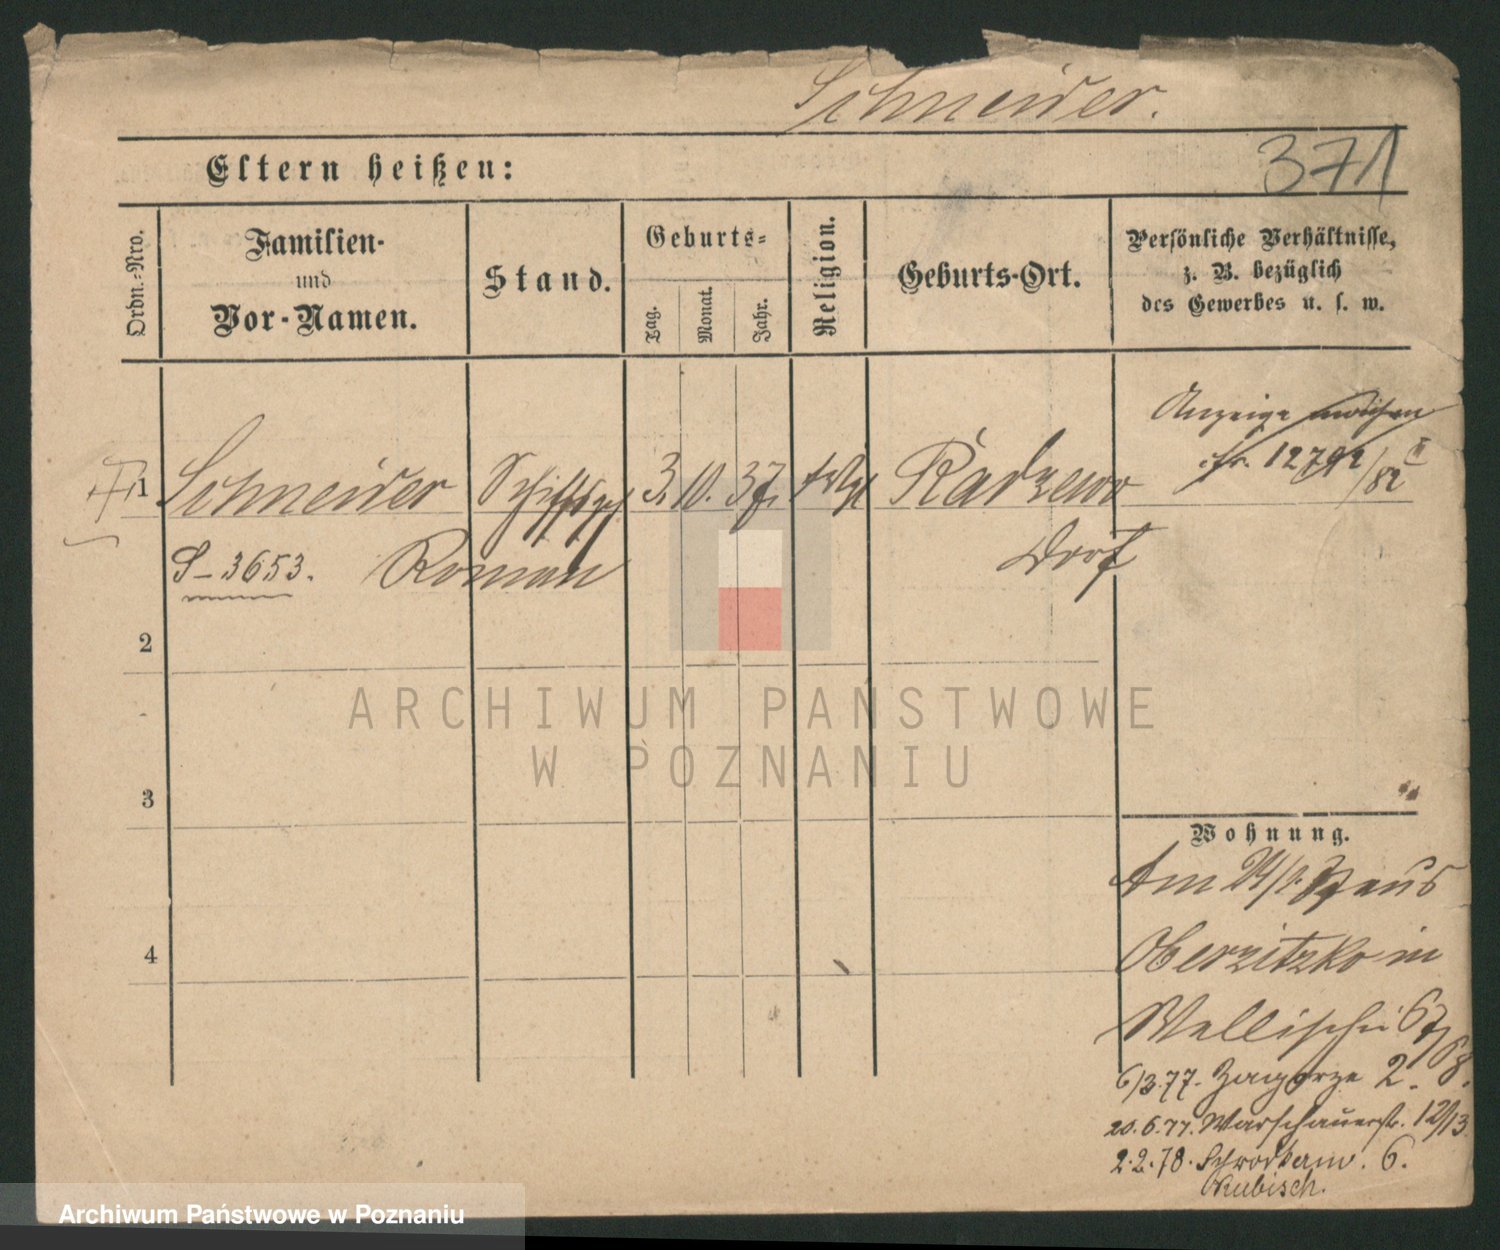 Schneider.
371
Eltern heißen:
Ordn.-Nro.
Familien-
und
Vor-Namen.
Stand.
Geburts-
Tag.
Monat.
Jahr.
Religion.
Geburts-Ort.
Persönliche Verhältnisse,
z. B. bezüglich
des Gewerbes u. s. w.
Anzeige machen
cfr. 12792/82 II
1 Schneider 3. 10. 37. Radzewo
S-3653. Roman Dorf
2
3
4
Wohnung.
Am aus
Oberzitzko in
Wallischei 67/68.
6/3.77. Zagorze 2.
20.6.77. Warschauerstr. 12/13
2.2.78. 6.
Kubisch.
ARCHIWUM PAŃSTWOWE
W POZNANIU
Archiwum Państwowe w Poznaniu